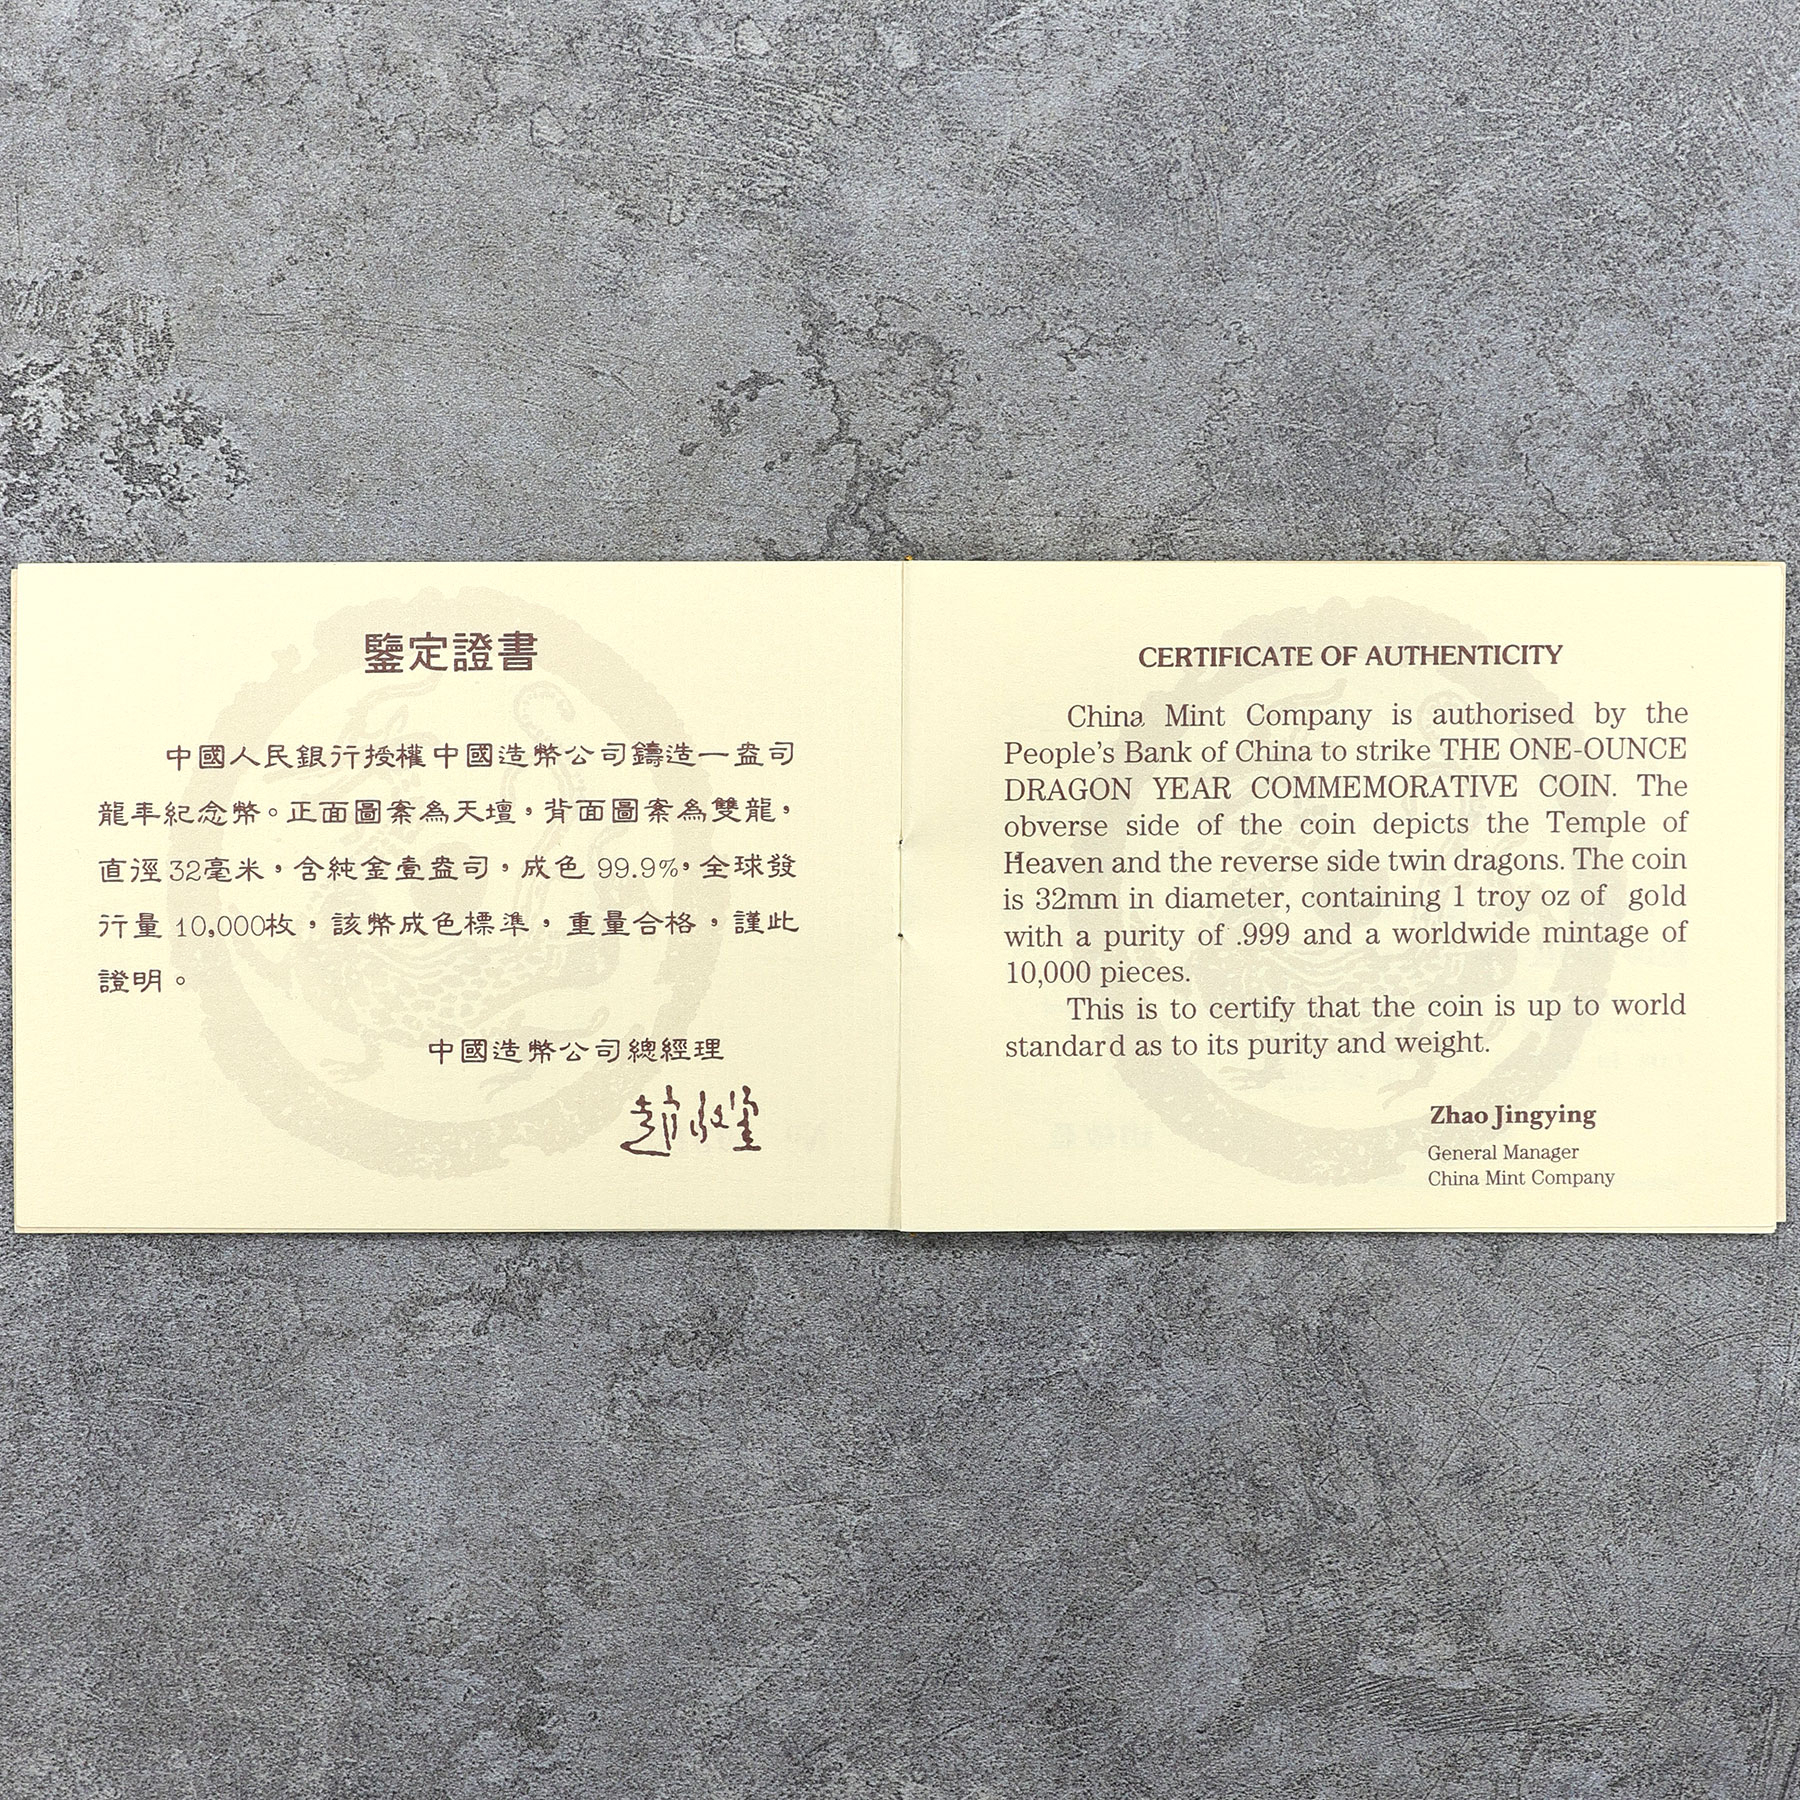 鑒定證書
中國人民銀行授權中國造幣公司鑄造一盎司
龍年紀念幣。正面圖案為天壇，背面圖案為雙龍，
直徑32毫米，含純金壹盎司，成色 99.9%，全球發
行量 10,000枚，該幣成色標準，重量合格，謹此
證明。
中國造幣公司總經理
CERTIFICATE OF AUTHENTICITY
China Mint Company is authorised by the
People's Bank of China to strike THE ONE-OUNCE
DRAGON YEAR COMMEMORATIVE COIN. The
obverse side of the coin depicts the Temple of
Heaven and the reverse side twin dragons. The coin
is 32mm in diameter, containing 1 troy oz of gold
with a purity of .999 and a worldwide mintage of
10,000 pieces.
This is to certify that the coin is up to world
standard as to its purity and weight.
Zhao Jingying
General Manager
China Mint Company